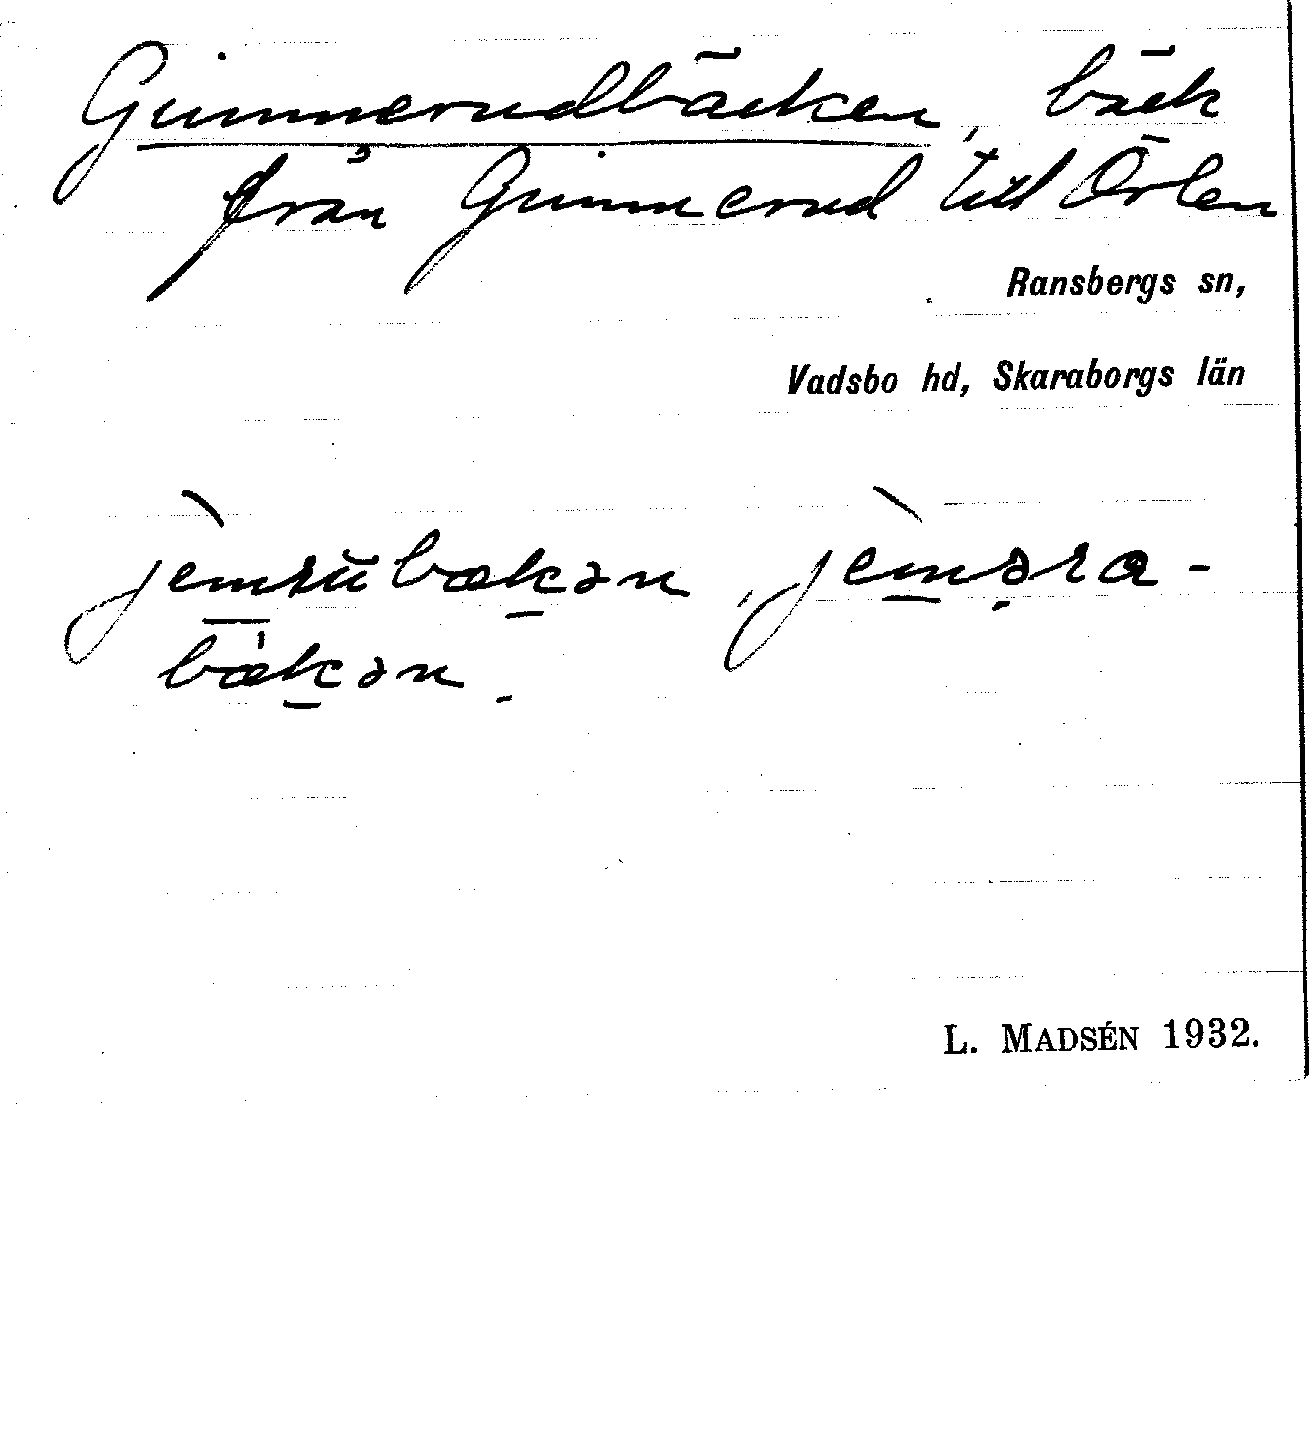 Gimmerudbäcken, bäck
från Gimmerud till Örlen
Ransbergs sn,
Vadsbo hd, Skaraborgs län
jèm̲rŭbæk̲ən, jèm̲əra-
bæ̀k̲ən.
L. MADSÉN 1932.